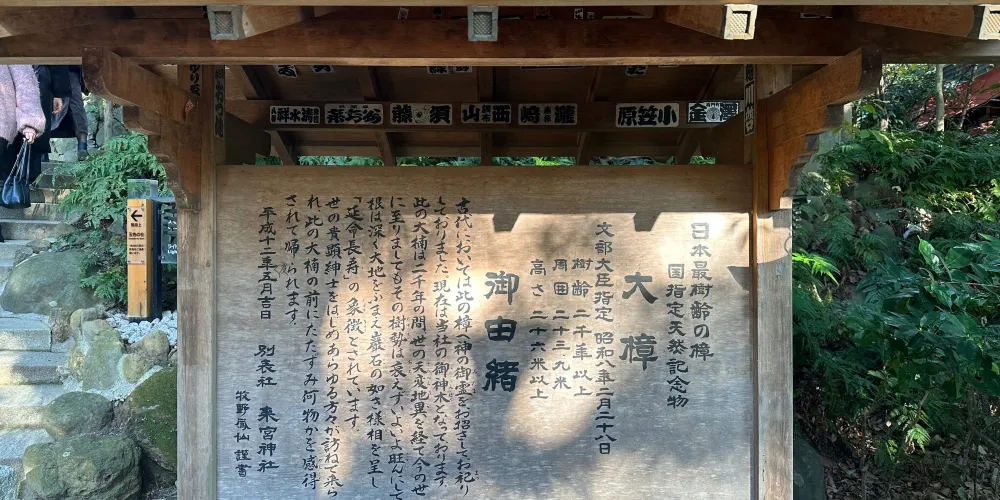 日本最樹齢の樟
国指定天然記念物
大樟
文部大臣指定 昭和八年二月二十八日
樹齢 二千年以上
周囲 二十三、九米
高さ 二十六米以上
御由緒
古代においては此の樟へ神の御霊をお招きしてお祀り
しておりました。現在は当社の御神木となっております。
此の大楠は二千年の間、世の天変地異を経て今の世
に至りましてもその樹勢は衰えずいよいよ旺んにて
根は深く大地をふまえ巌石の如き様相を呈し
「延命長寿」の象徴とされています。
世の貴顕紳士をはじめあらゆる方々が訪ねて来ら
れ、此の大楠の前にたたずみ何物かを感得
されて帰られます。
平成十二年五月吉日
別表社 来宮神社
牧野 仙 謹書
小笠原
西山
須藤